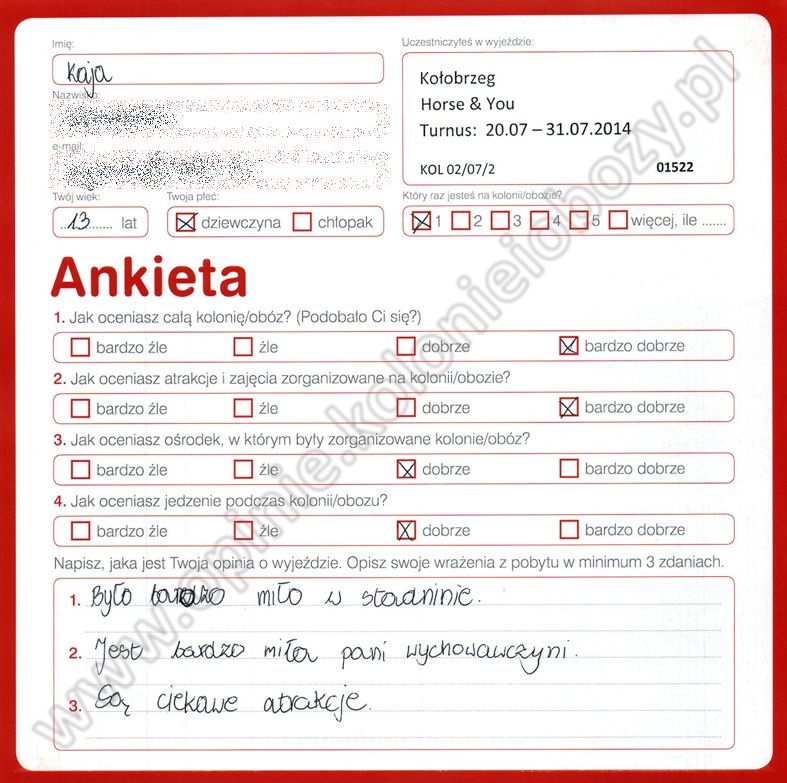 Imię:
Kaja
Nazwisko:
e-mail:
Twój wiek:
..13....... lat
Twoja płeć:
dziewczyna chłopak
Uczestniczyłeś w wyjeździe:
Kołobrzeg
Horse & You
Turnus: 20.07 – 31.07.2014
KOL 02/07/2 01522
Który raz jesteś na kolonii/obozie?
1 2 3 4 5 więcej, ile .......
Ankieta
1. Jak oceniasz całą kolonię/obóz? (Podobało Ci się?)
bardzo źle źle dobrze bardzo dobrze
2. Jak oceniasz atrakcje i zajęcia zorganizowane na kolonii/obozie?
bardzo źle źle dobrze bardzo dobrze
3. Jak oceniasz ośrodek, w którym były zorganizowane kolonie/obóz?
bardzo źle źle dobrze bardzo dobrze
4. Jak oceniasz jedzenie podczas kolonii/obozu?
bardzo źle źle dobrze bardzo dobrze
Napisz, jaka jest Twoja opinia o wyjeździe. Opisz swoje wrażenia z pobytu w minimum 3 zdaniach.
1. Było bardzo miło w stadninie.
2. Jest bardzo miła pani wychowawczyni.
3. Są ciekawe atrakcje.
www.opinie.kolonieiobozy.pl